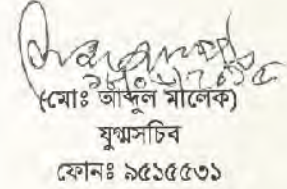 (মোঃ আব্দুল মালেক)
যুগ্মসচিব
ফোনঃ ৯৫১৫৫৩১